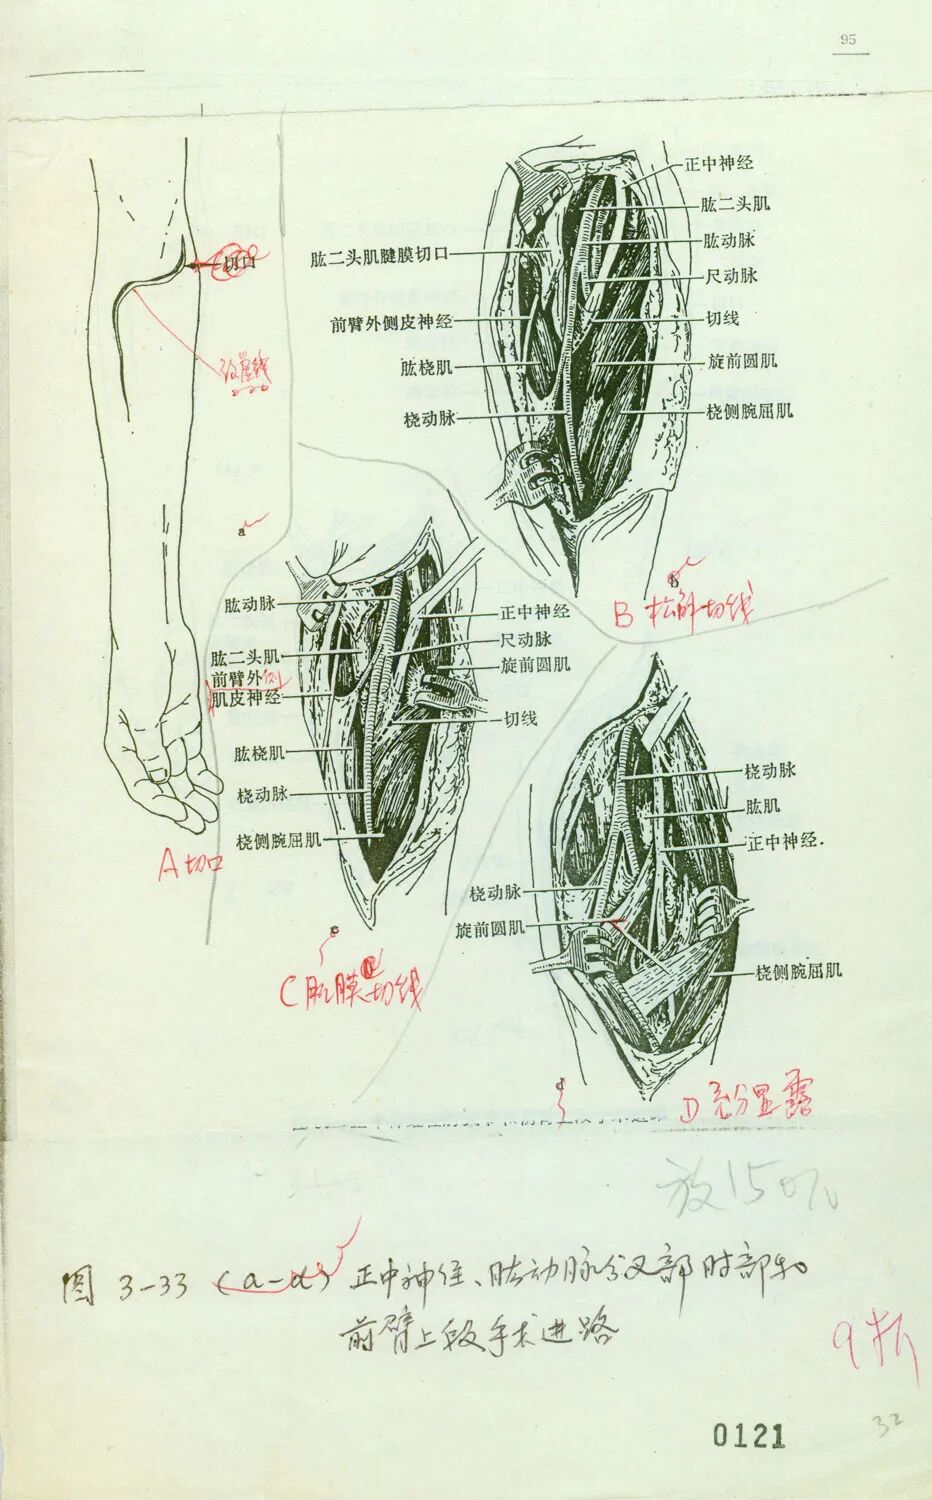 95
切口
a
正中神经
肱二头肌
肱动脉
肱二头肌腱膜切口
尺动脉
前臂外侧皮神经
切线
肱桡肌
旋前圆肌
桡动脉
桡侧腕屈肌
b
B 松解切线
肱动脉
正中神经
尺动脉
肱二头肌
旋前圆肌
前臂外侧
肌皮神经
切线
肱桡肌
桡动脉
桡侧腕屈肌
A 切口
c
C 肌膜切线
桡动脉
肱肌
正中神经.
桡动脉
旋前圆肌
桡侧腕屈肌
d
D 充分显露
放15
图 3-33 (a-d) 正中神经、肱动脉分叉部肘部和
前臂上段手术进路
9折
32
0121